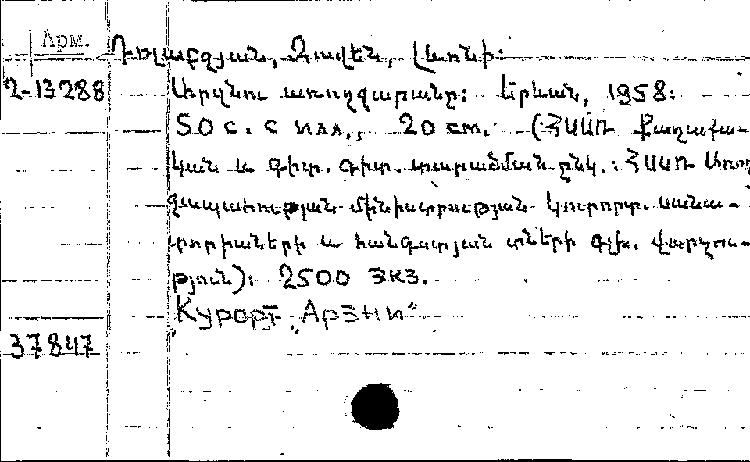 Арм.
Դոլաբզյան, Զավեն, Լևոնի:
2-13288
Արզնու առողջարանը: Երևան, 1958:
50 с. с илл., 20 см. (ՀՍՍՌ Քաղաքա-
կան և գիտ. գիտ. տարածման ընկ.: ՀՍՍՌ Առող
ջապահության մինիստրության կուրորտ. սանա-
տորիաների և հանգստյան տների գլխ. վարչու-
թյուն): 2500 экз.
"Курорт "Арзни"
37847